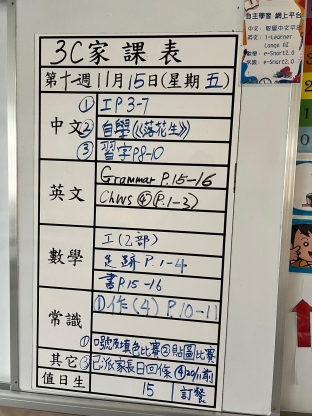 3C家課表
第十一週11月15日(星期五)
中文
①工P 3-7
②自學《落花生》
③習字P8-10
英文
Grammar P.15-16
Ch WS ④(P.1-3)
數學
工(乙部)
足跡P.1-4
書P15-16
常識
①作(4) P.10-11
其它
①口號及填色比賽②貼圖比賽
③已派家長日回條④20/11前
值日生
15
訂餐
自主學習 網上平台
英文: i-Learner
e-Smart2.0
e-Smart2.0